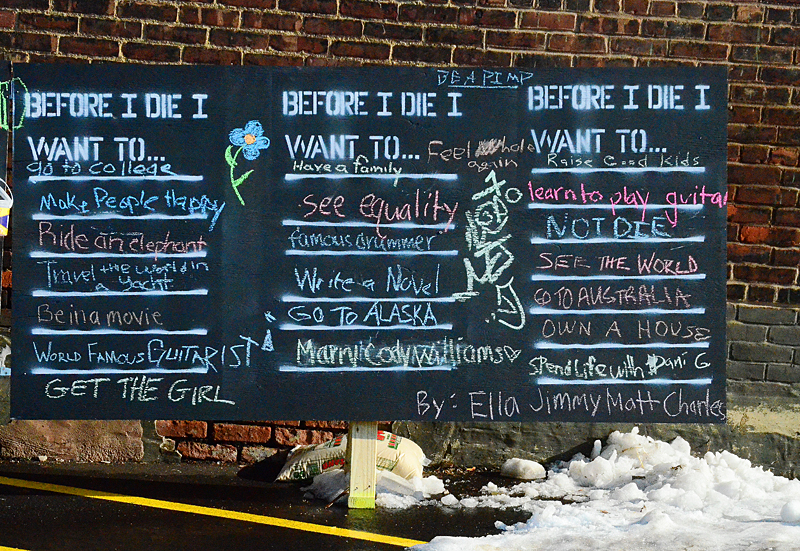 BEFORE I DIE I
WANT TO...
go to college
Make People Happy
Ride an elephant
Travel the world in
a yacht
Be in a movie
WORLD FAMOUS GUITARIST
GET THE GIRL
BE A PIMP
BEFORE I DIE I
WANT TO...
Have a family
Feel whole
again
see equality
famous drummer
Write a Novel
GO TO ALASKA
Marry Cody Williams
BEFORE I DIE I
WANT TO...
Raise Good Kids
learn to play guitar
NOT DIE
SEE THE WORLD
GO TO AUSTRALIA
OWN A HOUSE
Spend Life with Dani G
By: Ella Jimmy Matt Charles